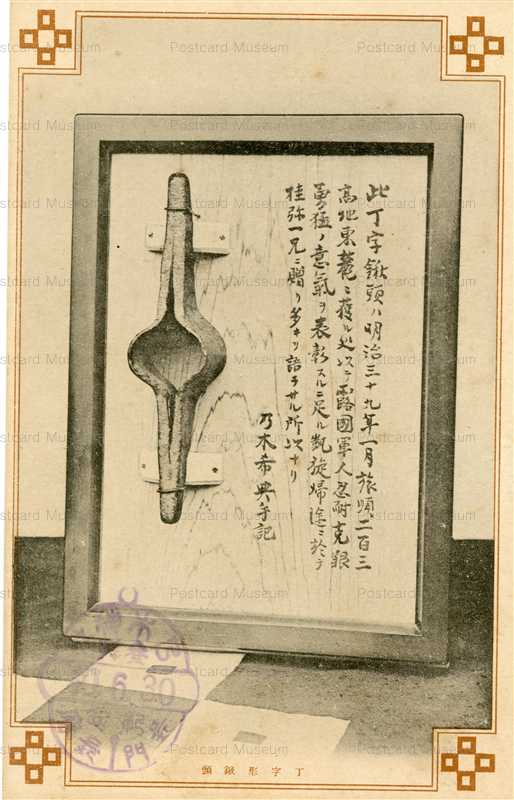 此丁字鍬頭ハ明治三十九年一月旅順二百三
高地東麓ニ獲ル処以テ露國軍人忍耐克艱
勇猛ノ意氣ヲ表彰スルニ足ル凱旋帰途ニ於テ
桂弥一兄ニ贈リ多キヲ語ラサル所以ナリ
乃木希典手記
6.30
門
頭鍬形字丁
Postcard Museum